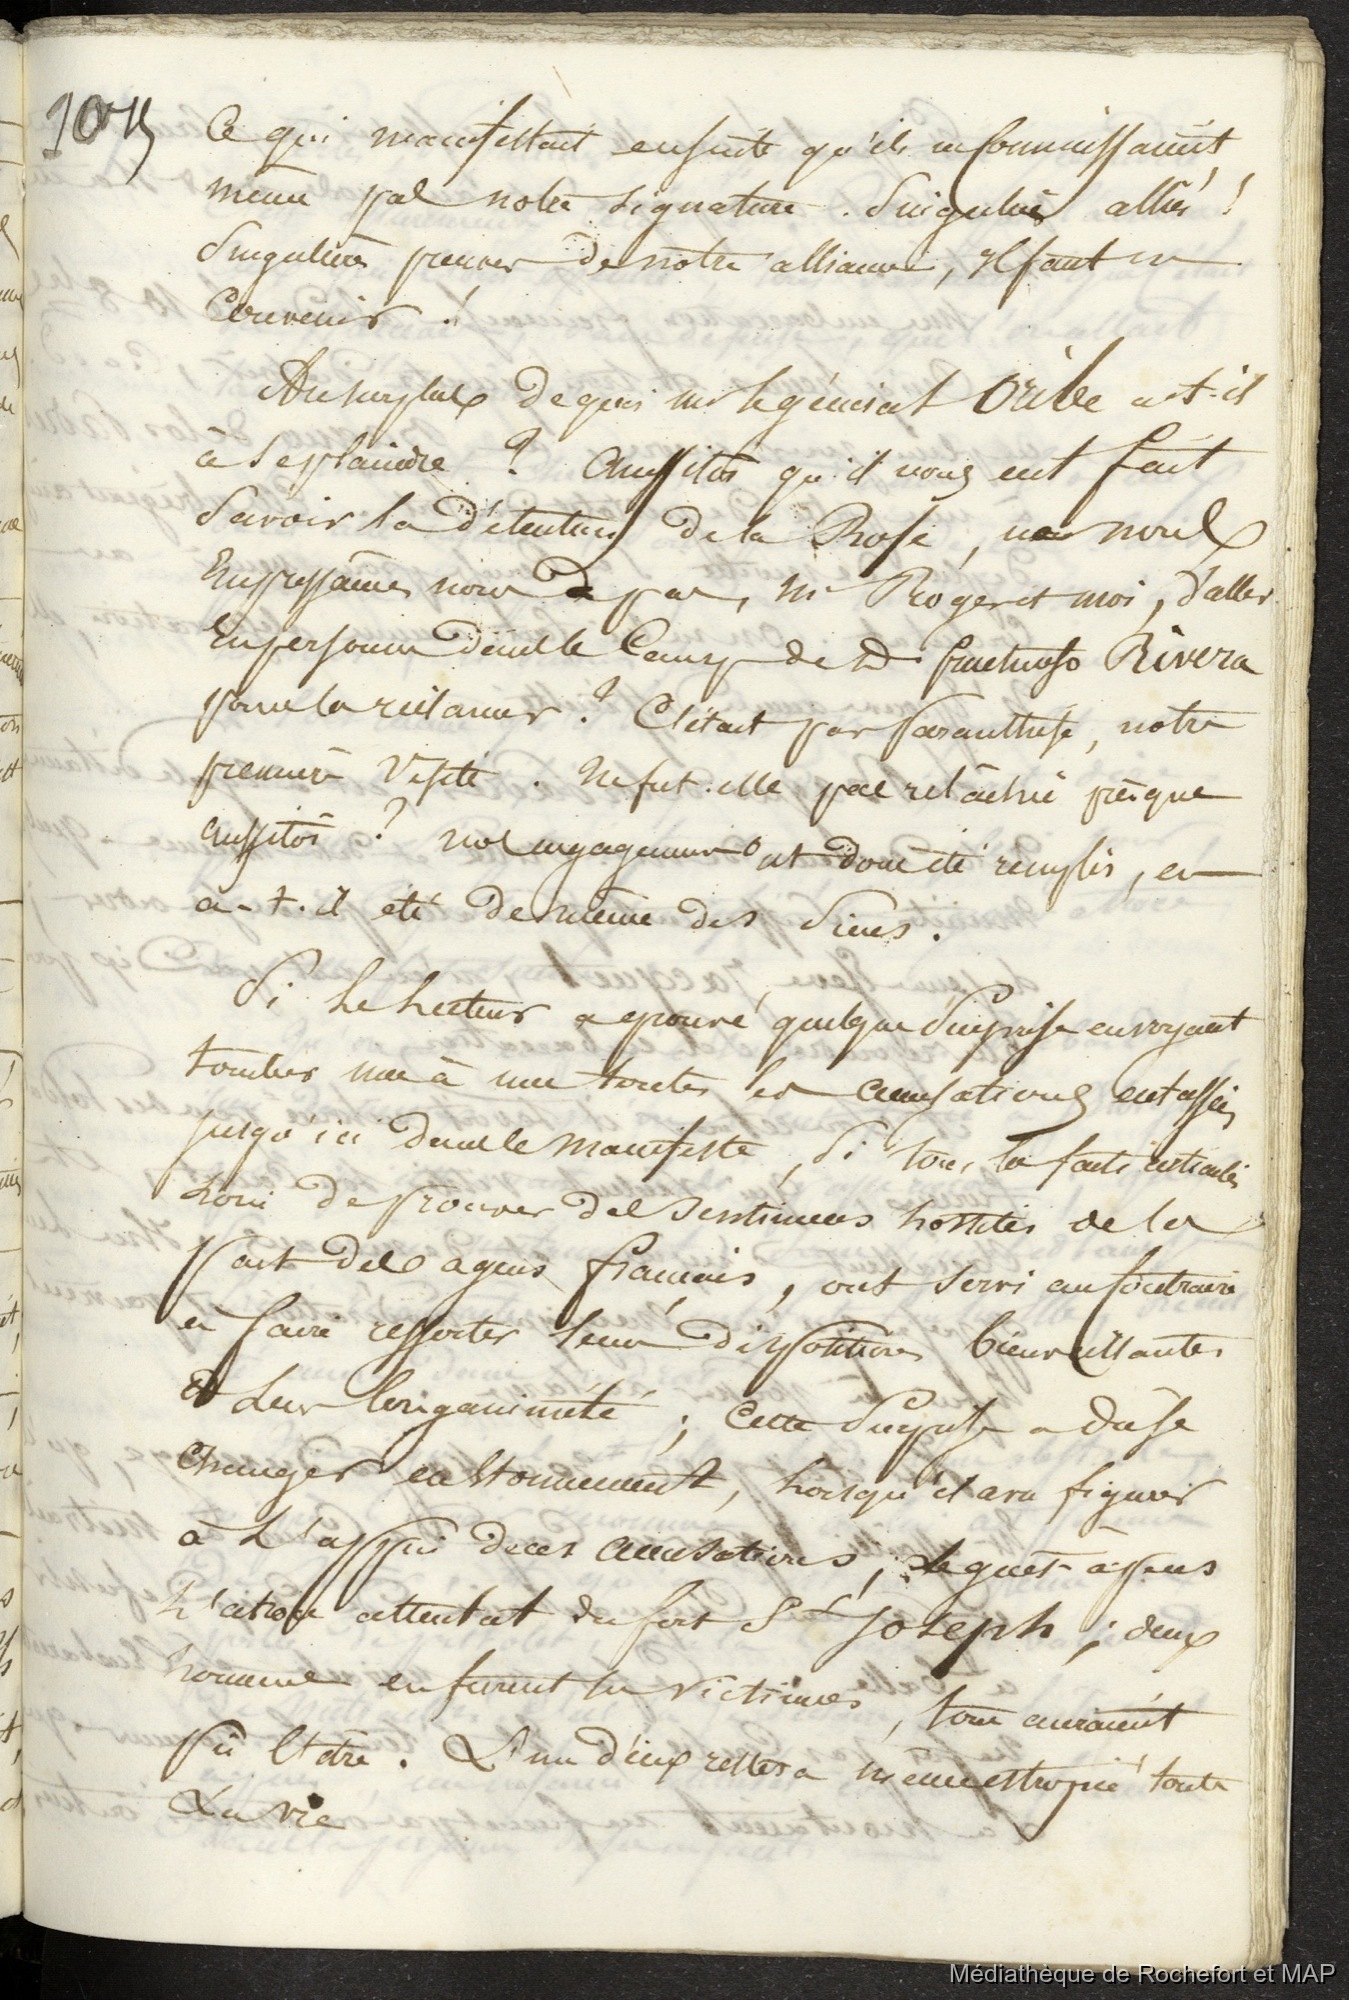 Ce qui manifestait ensuite qu'ils ne connaissaient
même pas notre signature. Singuliers alliés !
Singulières preuves de notre alliance, il faut en
convenir !
Au surplus de quoi mr le général Oribe a-t-il
à se plaindre ? Aussitôt qu'il nous eut fait
savoir la détention de la Rose, ne nous
empressâmes nous pas, mr Roger et moi, d'aller
en personne dans le Camp de D. fructuoso Rivera
pour la réclamer ? C'était par paranthèse, notre
première visite. Ne fut-elle pas relâchée presque
aussitôt ? nos engagemens ont donc été remplis, en
a-t-il été de même des siens.
Si le lecteur a eprouvé quelque surprise en voyant
tomber une à une toutes les accusations entassées
jusqu'ici dans le manifeste, si tous les faits articulés
loin de prouver des sentimens hostiles de la
part des agens français, ont servi au contraire
à faire ressortir leurs dispositions bienveillantes
et leur longanimité ; cette surprise a dû se
changer en étonnement, lorsqu'il a vu figurer
à l'appui de ces accusations, le guet-àpens
l'atroce attentat du fort St Joseph ; deux
hommes en furent les victimes, tous auraient
pû l'être. L'un d'eux restera même estropié toute
sa vie
Médiathèque de Rochefort et MAP